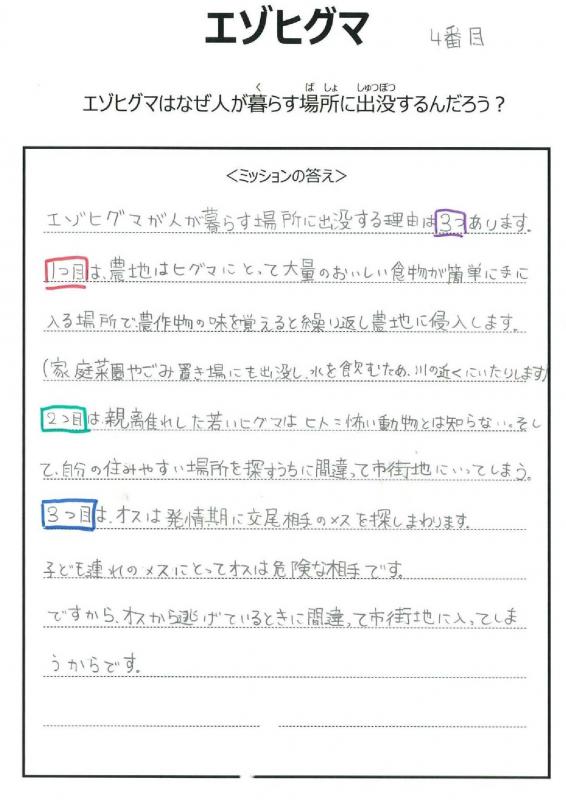 エゾヒグマ
4番目
エゾヒグマはなぜ人が暮らす場所に出没するんだろう？
<ミッションの答え>
エゾヒグマが人が暮らす場所に出没する理由は3つあります。
1つ目は、農地はヒグマにとって大量のおいしい食物が簡単に手に
入る場所で、農作物の味を覚えると繰り返し農地に侵入します。
(家庭菜園やごみ置き場にも出没し、水を飲むため、川の近くにいたりします)
2つ目は、親離れした若いヒグマは ヒト=怖い動物とは知らない。そし
て、自分の住みやすい場所を探すうちに間違って市街地にいってしまう。
3つ目は、オスは発情期に交尾相手のメスを探しまわります。
子ども連れのメスにとってオスは危険な相手です。
ですから、オスから逃げているときに間違って市街地に入ってしま
うからです。